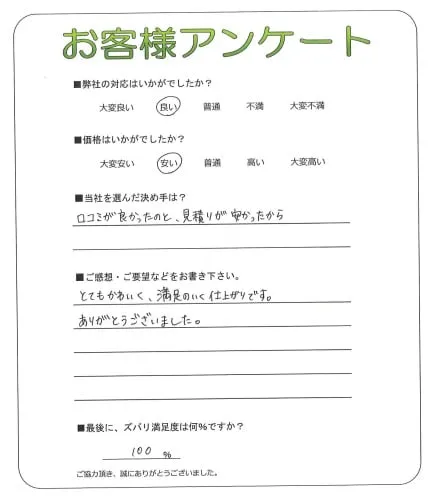 お客様アンケート
■弊社の対応はいかがでしたか？
大変良い 良い 普通 不満 大変不満
■価格はいかがでしたか？
大変安い 安い 普通 高い 大変高い
■当社を選んだ決め手は？
口コミが良かったのと、見積りが安かったから
■ご感想・ご要望などをお書き下さい。
とてもかわいく、満足のいく仕上がりです。
ありがとうございました。
■最後に、ズバリ満足度は何％ですか？
100 ％
ご協力頂き、誠にありがとうございました。